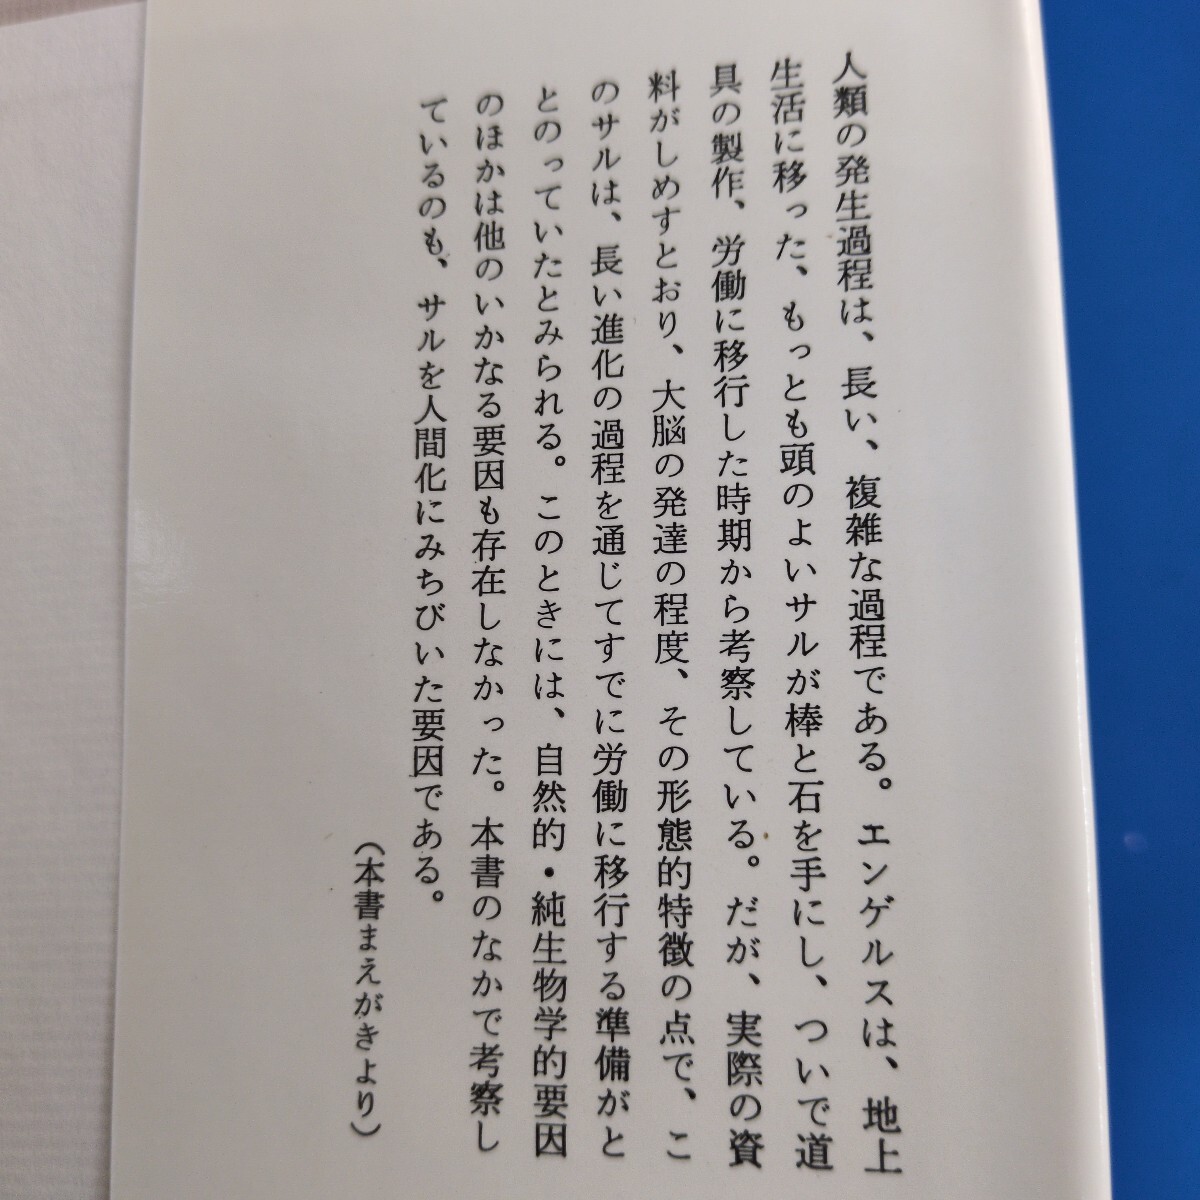 人類の発生過程は、長い、複雑な過程である。エンゲルスは、地上
生活に移った、もっとも頭のよいサルが棒と石を手にし、ついで道
具の製作、労働に移行した時期から考察している。だが、実際の資
料がしめすとおり、大脳の発達の程度、その形態的特徴の点で、こ
のサルは、長い進化の過程を通じてすでに労働に移行する準備がと
とのっていたとみられる。このときには、自然的・純生物学的要因
のほかは他のいかなる要因も存在しなかった。本書のなかで考察し
ているのも、サルを人間化にみちびいた要因である。
（本書まえがきより）